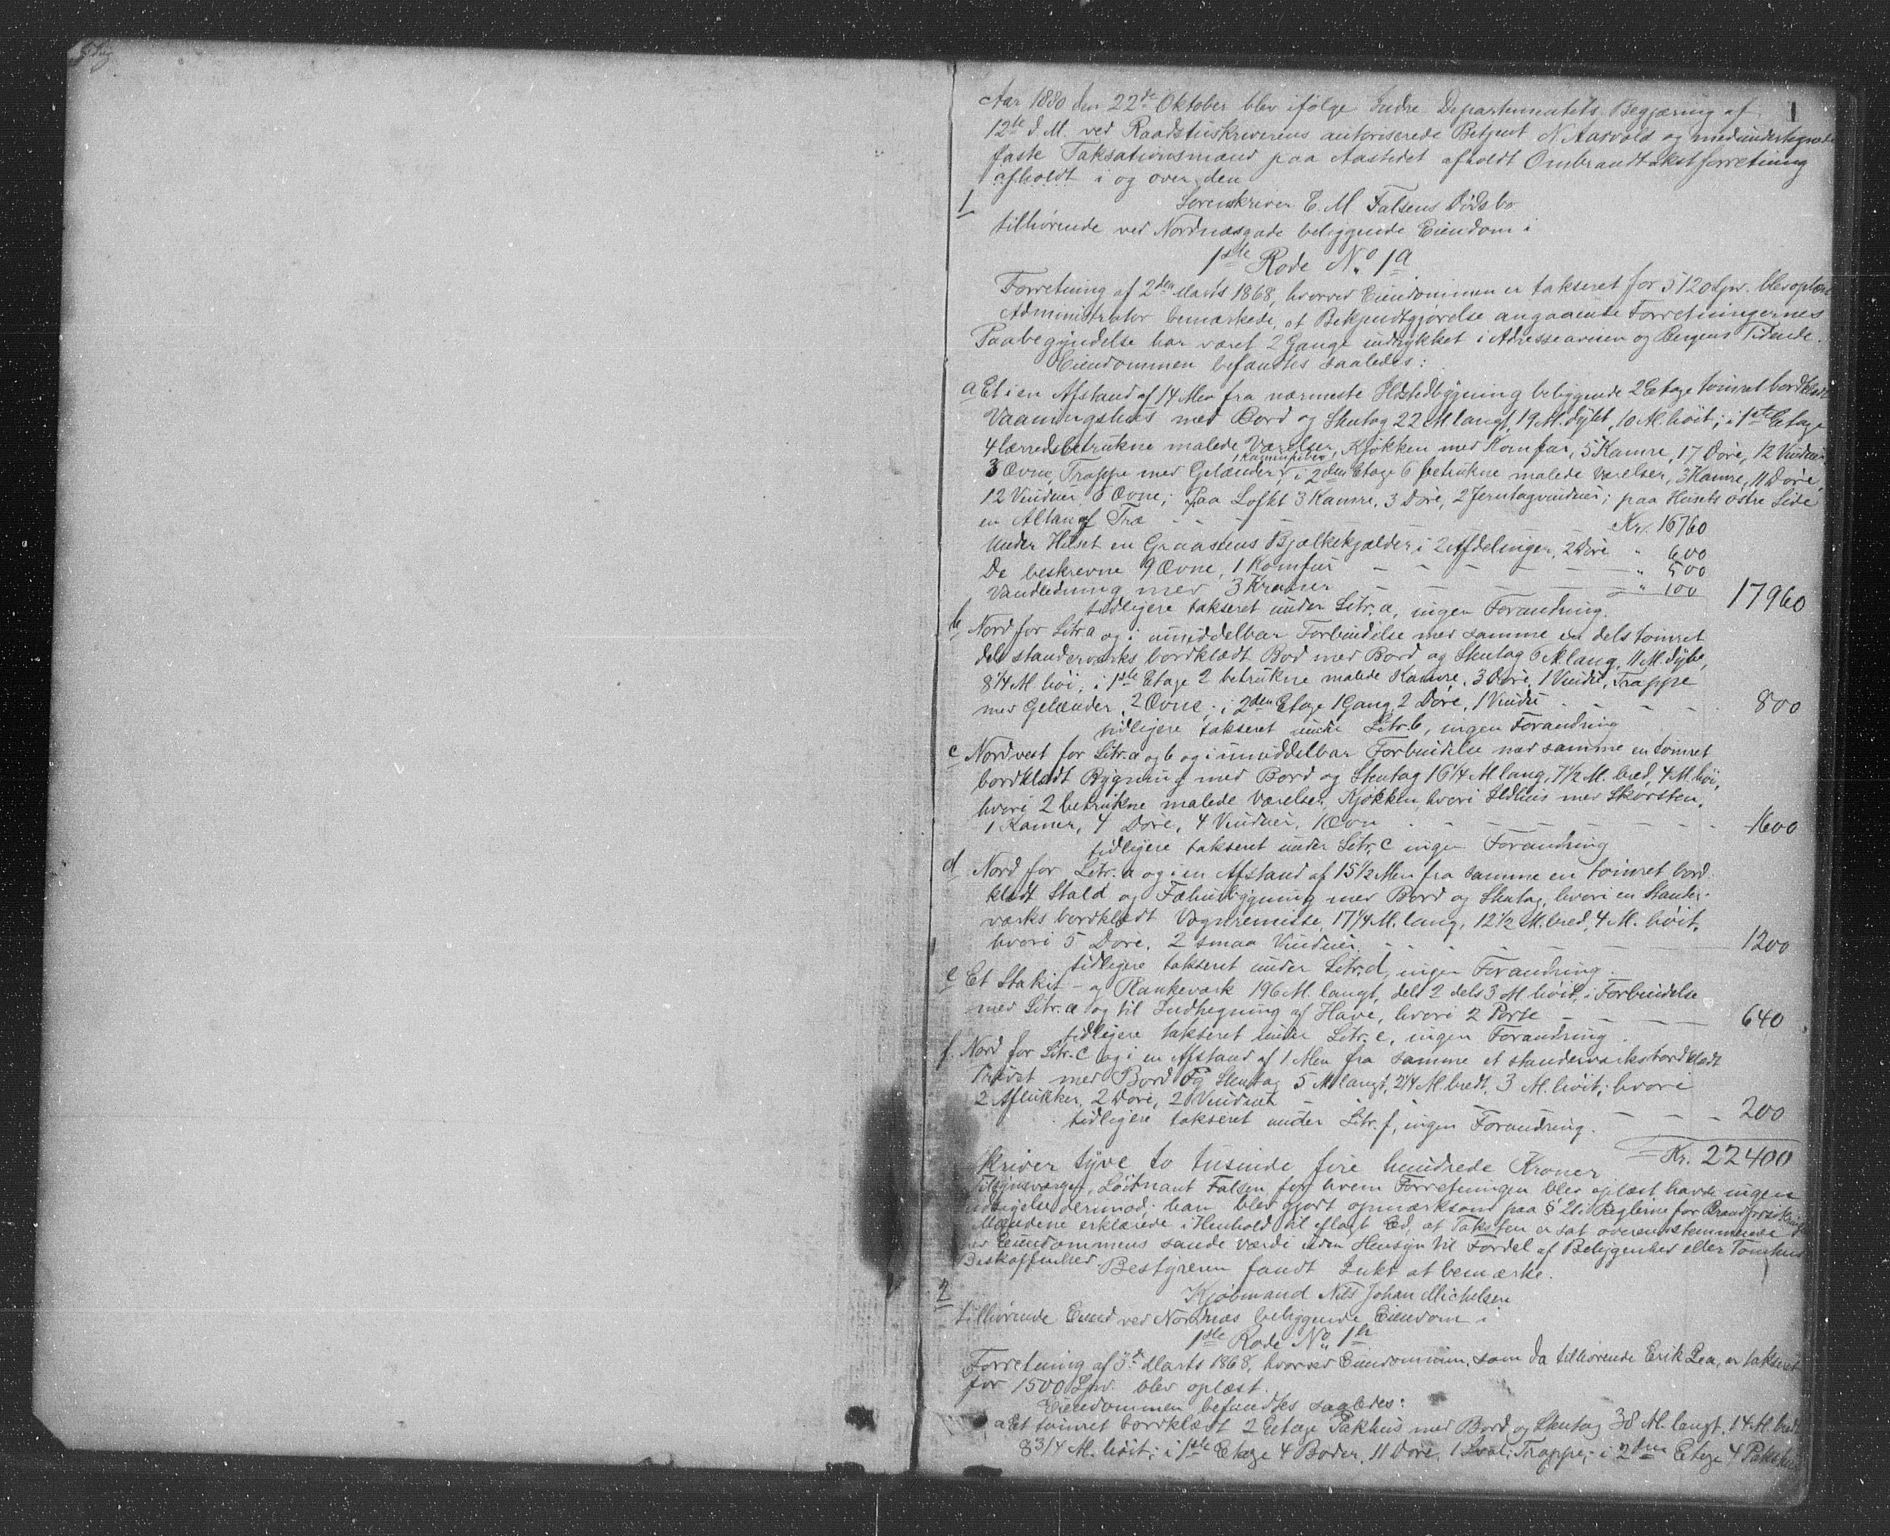 1
Aar 1880 den 22de Oktober blev ifølge Indre Departementets Begjæring af
12te d. M. ved Raadstuskriverens autoriserede Betjent N. Aarvold og medundertegnede
faste Taksationsmænd paa Aastedet afholdt Ombrandtakstforretning
afholdt i og over den
1
Sorenskriver E. M. Falsens Dødsbo
tilhørende ved Nordnæsgade beliggende Eiendom i
1ste Rode No 1a
Forretning af 2den Marts 1868, hvorved Eiendommen er takseret for 5120 Spd. blev oplæst
Administrator bemærkede, at Bekjendtgjørelse angaaende Forretningernes
Paabegyndelse har været 2 Gange indrykket i Adresseavisen og Bergens Tidende.
Eiendommen befandtes saaledes:
a Et i en Afstand af 14 Alen fra nærmeste Ildstedbygning beliggende 2 Etage tømret bordklædt
Vaaningshus med Bord og Stentag 22 Al langt, 19 Al. dybt, 10 Al. høit; i 1ste Etage
4 lærredsbetrukne malede Værelser, Kjøkken med Komfur, 5 Kamre, 17 Døre, 12 Vinduer
3 Ovne, Trappe med Gelænder, i 2den Etage 6 betrukne malede Værelser, 3 Kamre, 11 Døre,
12 Vinduer 6 Ovne; paa Loftet 3 Kamre, 3 Døre, 2 Jerntagvinduer; paa Husets østre Side
en Altan af Træ - - - Kr. 16760
Under Huset en Graastens Bjælkekjælder i 2 Afdelinger, 2 Døre " 600
De beskrevne 9 Ovne, 1 Komfur - - - " 500
Vandledning med 3 Kraner - - - " 100 17960
tidligere takseret under Litr. a, ingen Forandring.
b Nord for Litr a og i umiddelbar Forbindelse med samme en dels tømret
dels standerværks bordklædt Bod med Bord og Stentag 6 Al lang, 11 Al. dybt,
8 1/4 Al høi; i 1ste Etage 2 betrukne malede Kamre, 3 Døre, 1 Vindu, Trappe
med Gelænder, 2 Ovne; i 2den Etage 1 Gang, 2 Døre, 1 Vindu - - - 800
tidligere takseret under Litr. b, ingen Forandring
c Nordvest for Litr. a og b og i umiddelbar Forbindelse med samme en tømret
bordklædt Bygning med Bord og Stentag 16 1/4 Al lang, 7 1/2 Al. bred, 4 Al. høi,
hvori 2 betrukne malede Værelser, Kjøkken hvori Ildhus med Skorsten,
1 Kamer, 4 Døre, 4 Vinduer, 1 Ovn - - - 1600
tidligere takseret under Litr. c ingen Forandring
d Nord for Litr. a og i en Afstand af 15 1/2 Alen fra samme en tømret bord
klædt Stald og Fæhusbygning med Bord og Stentag, hvori en Stander-
værks bordklædt Vognremisse, 17 1/4 Al. lang, 12 1/2 Al. bred, 4 Al. høit,
hvori 5 Døre, 2 smaa Vinduer - - - 1200
tidligere takseret under Litr. d, ingen Forandring.
e Et Stakit- og Plankeværk 196 Al. langt, dels 2 dels 3 Al. høit, i Forbindelse
med Litr. a og til Indhegning af Have, hvori 2 Porte - - - 640
tidligere takseret under Litr. e, ingen Forandring.
f. Nord for Litr. c og i en Afstand af 1 Alen fra samme et standerværks bordklædt
Privet med Bord og Stentag 5 Al langt, 2 1/4 Al. bredt, 3 Al. høit; hvori
2 Aflukker, 2 Døre, 2 Vinduer - - - 200
tidligere takseret under Litr. f, ingen Forandring.
Kr. 22400
skriver tyve to tusinde fire hundrede Kroner
Tilsynsværgen, Løitnant Falsen for hvem Forretningen blev oplæst havde ingen
Indsigelse derimod; han blev gjort opmærksom paa § 21 i Reglerne for Brandforsikring
Mændene erklærede i Henhold til aflagt Ed, at Taksten er sat overensstemmende
med Eiendommens sande værdi uden Hensyn til Fordel af Beliggenhed eller Tomtens
Beskaffenhed. Bestyreren fandt Intet at bemærke.
2
Kjøbmand Nils Johan Michelsen
tilhørende Grund ved Nordnæs beliggende Eiendom i
1ste Rode No 1b
Forretning af 3de Marts 1868, hvorved Eiendommen, som da tilhørende Erik Lea, er takseret
for 1500 Spd. blev oplæst.
Eiendommen befandtes saaledes:
a Et tømret bordklædt 2 Etage Pakhus med Bord og Stentag 38 Al. langt, 14 Al. bredt
8 3/4 Al. høit; i 1ste Etage 4 Boder, 11 Døre, 1 Sval, Trappe; i 2den Etage 4 Pakhus